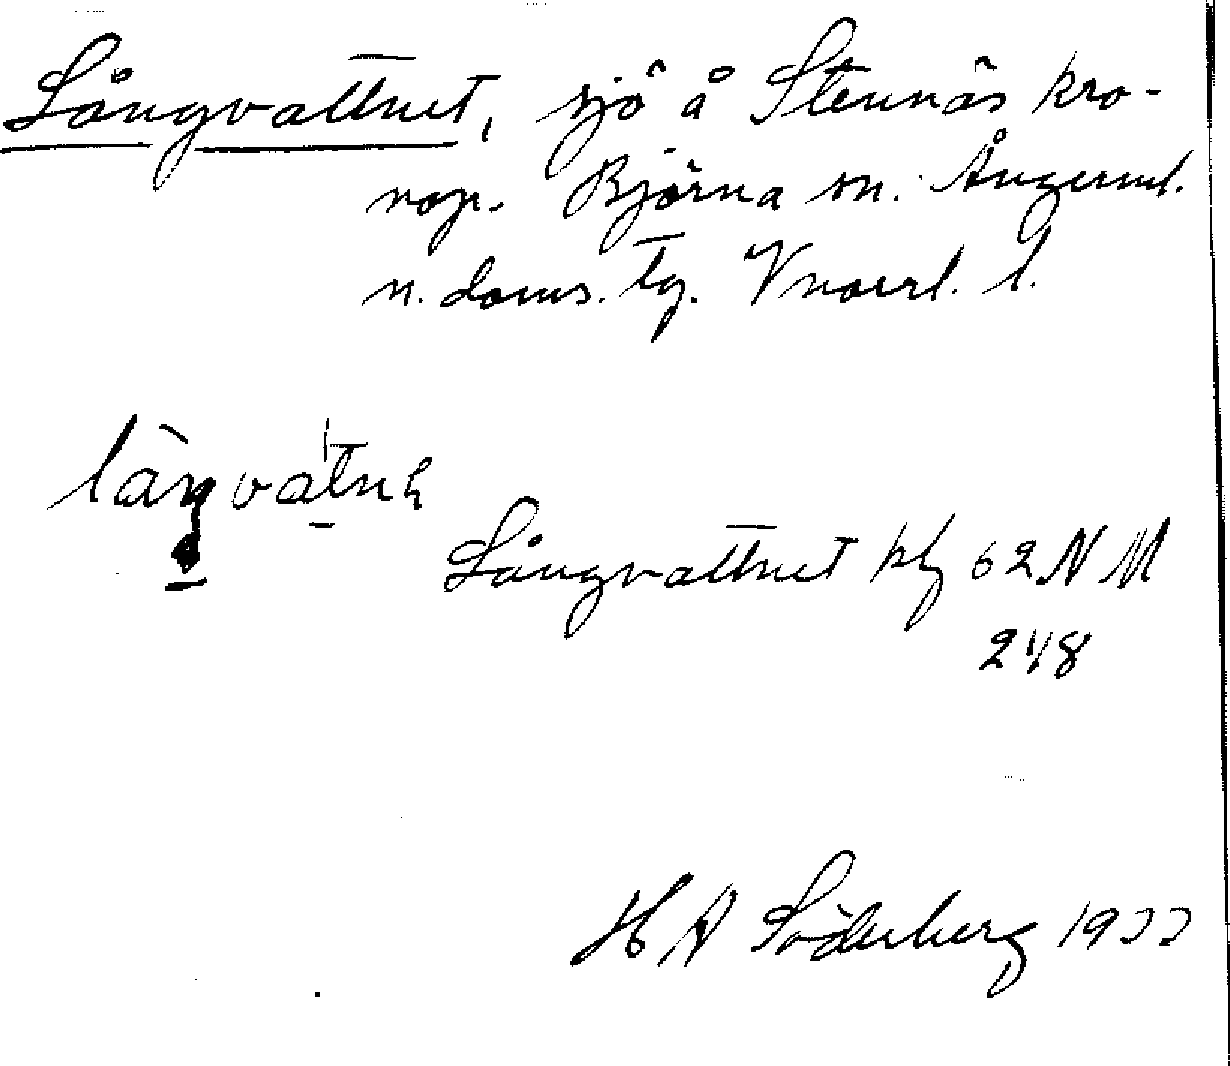 Långvattnet, sjö å Stennäs kro-
nop. Björna sn. Ångerml.
n. doms. tg. Vnorrl. l.
Långvattnet kbl 62 N M
248
H A Söderberg 1933